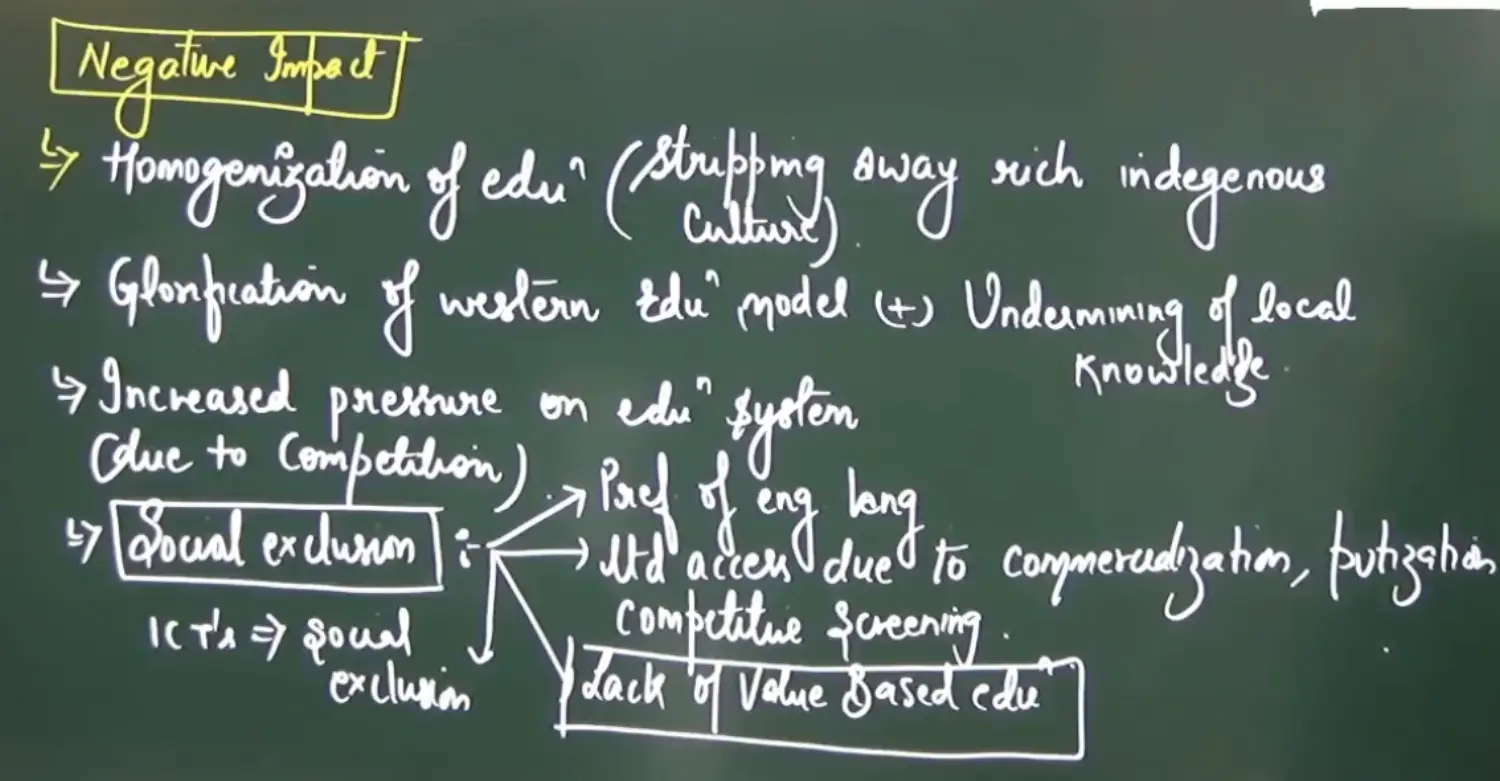 Negative Impact
↳ Homogenization of eduⁿ (Stripping away rich indegenous
Culture).
↳ Glorification of western Eduⁿ model (+) Undermining of local
Knowledge.
↳ Increased pressure on eduⁿ system
(due to Competition)
↳ Social exclusion :- → Pref of eng lang
→ ltd access due to commercialization, pvtization
Competitive Screening.
ICT's ⇒ Social
exclusion
Lack of Value Based eduⁿ